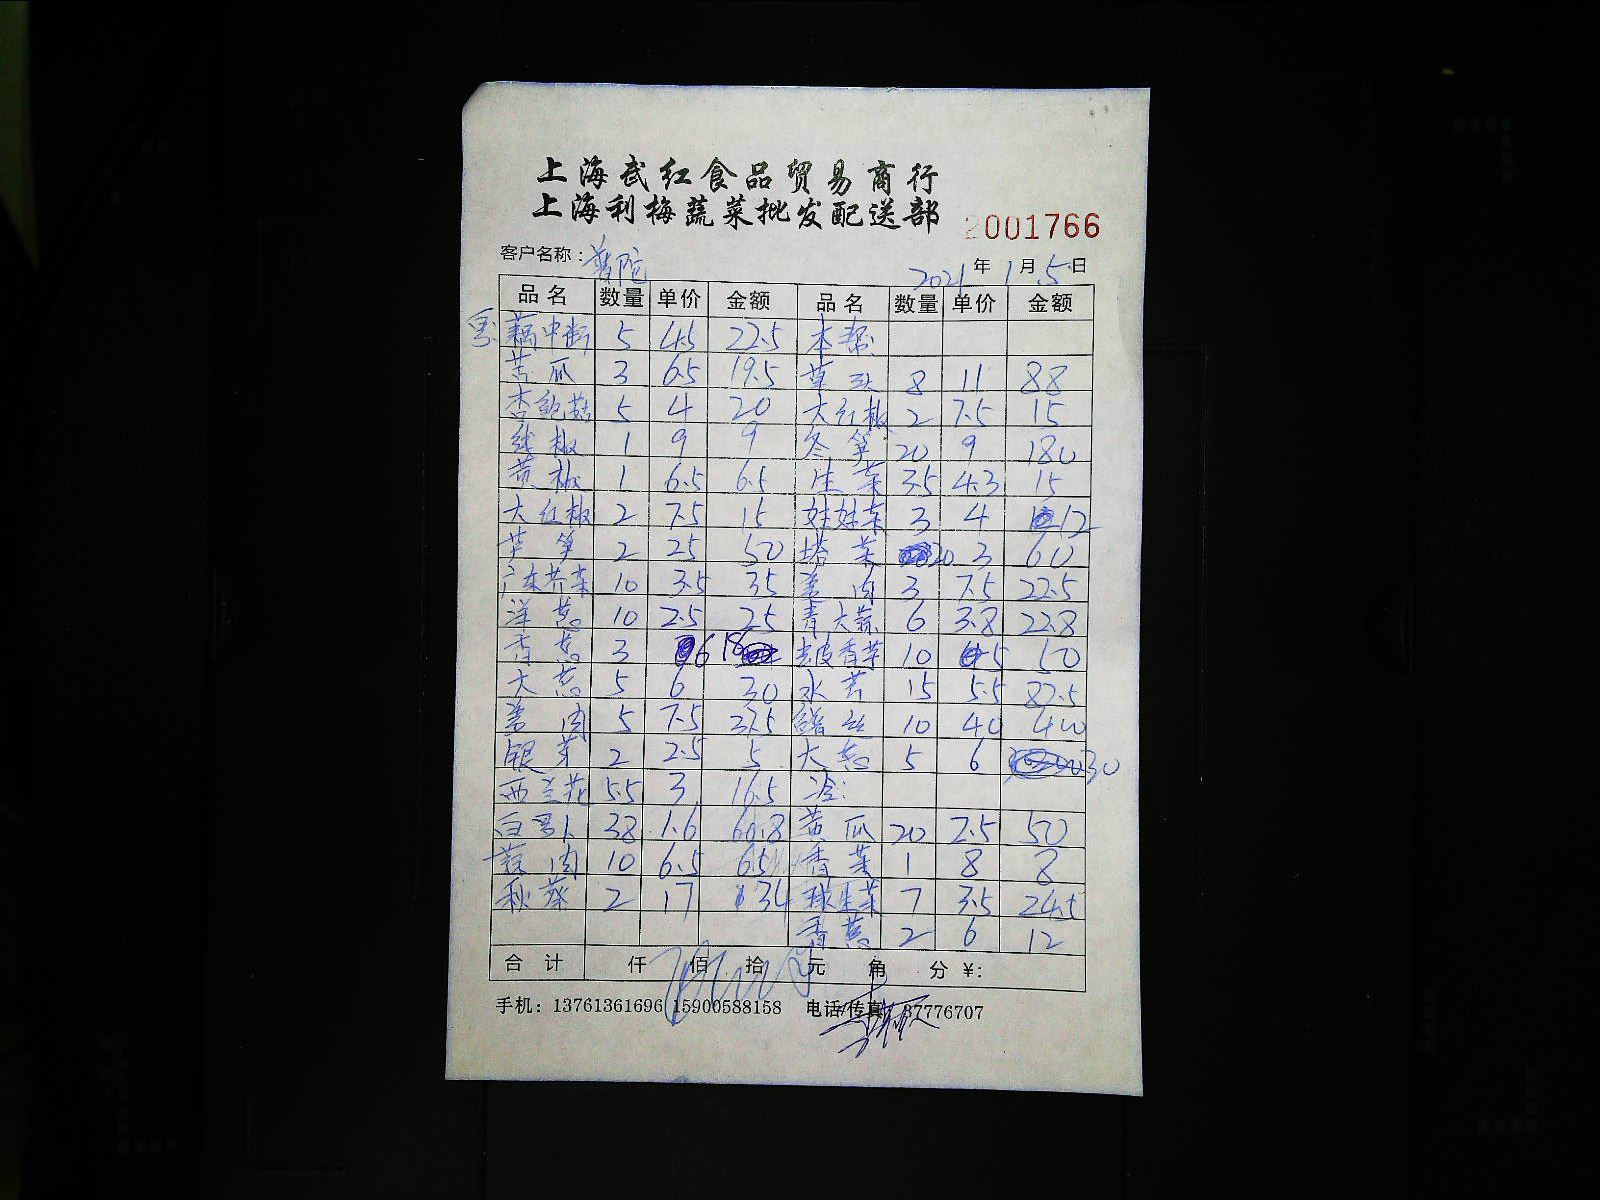 上海武红食品贸易商行
上海利梅蔬菜批发配送部
2001766
客户名称：普陀
2021年1月5日
品名 数量 单价 金额 品名 数量 单价 金额
藕中断 5 4.5 22.5 本帮
苦瓜 3 6.5 19.5 草头 8 11 88
杏鲍菇 5 4 20 大红椒 2 7.5 15
线椒 1 9 9 冬笋 20 9 180
黄椒 1 6.5 6.5 生菜 3.5 4.3 15
大红椒 2 7.5 15 娃娃菜 3 4 12
芦笋 2 25 50 塔菜 20 3 60
广东芥菜 10 3.5 35 姜肉 3 7.5 22.5
洋葱 10 2.5 25 青大蒜 6 3.8 22.8
香葱 3 6 18 去皮香芋 10 5 50
大葱 5 6 30 水芹 15 5.5 82.5
姜肉 5 7.5 37.5 鳝丝 10 40 400
银芽 2 2.5 5 大葱 5 6 30
西兰花 5.5 3 16.5 冷：
白萝卜 38 1.6 60.8 黄瓜 20 2.5 50
蒜肉 10 6.5 65 香菜 1 8 8
秋葵 2 17 34 球生菜 7 3.5 24.5
香葱 2 6 12
合计 仟 佰 拾 元 角 分 ¥:
手机：13761361696 15900588158 电话/传真 37776707